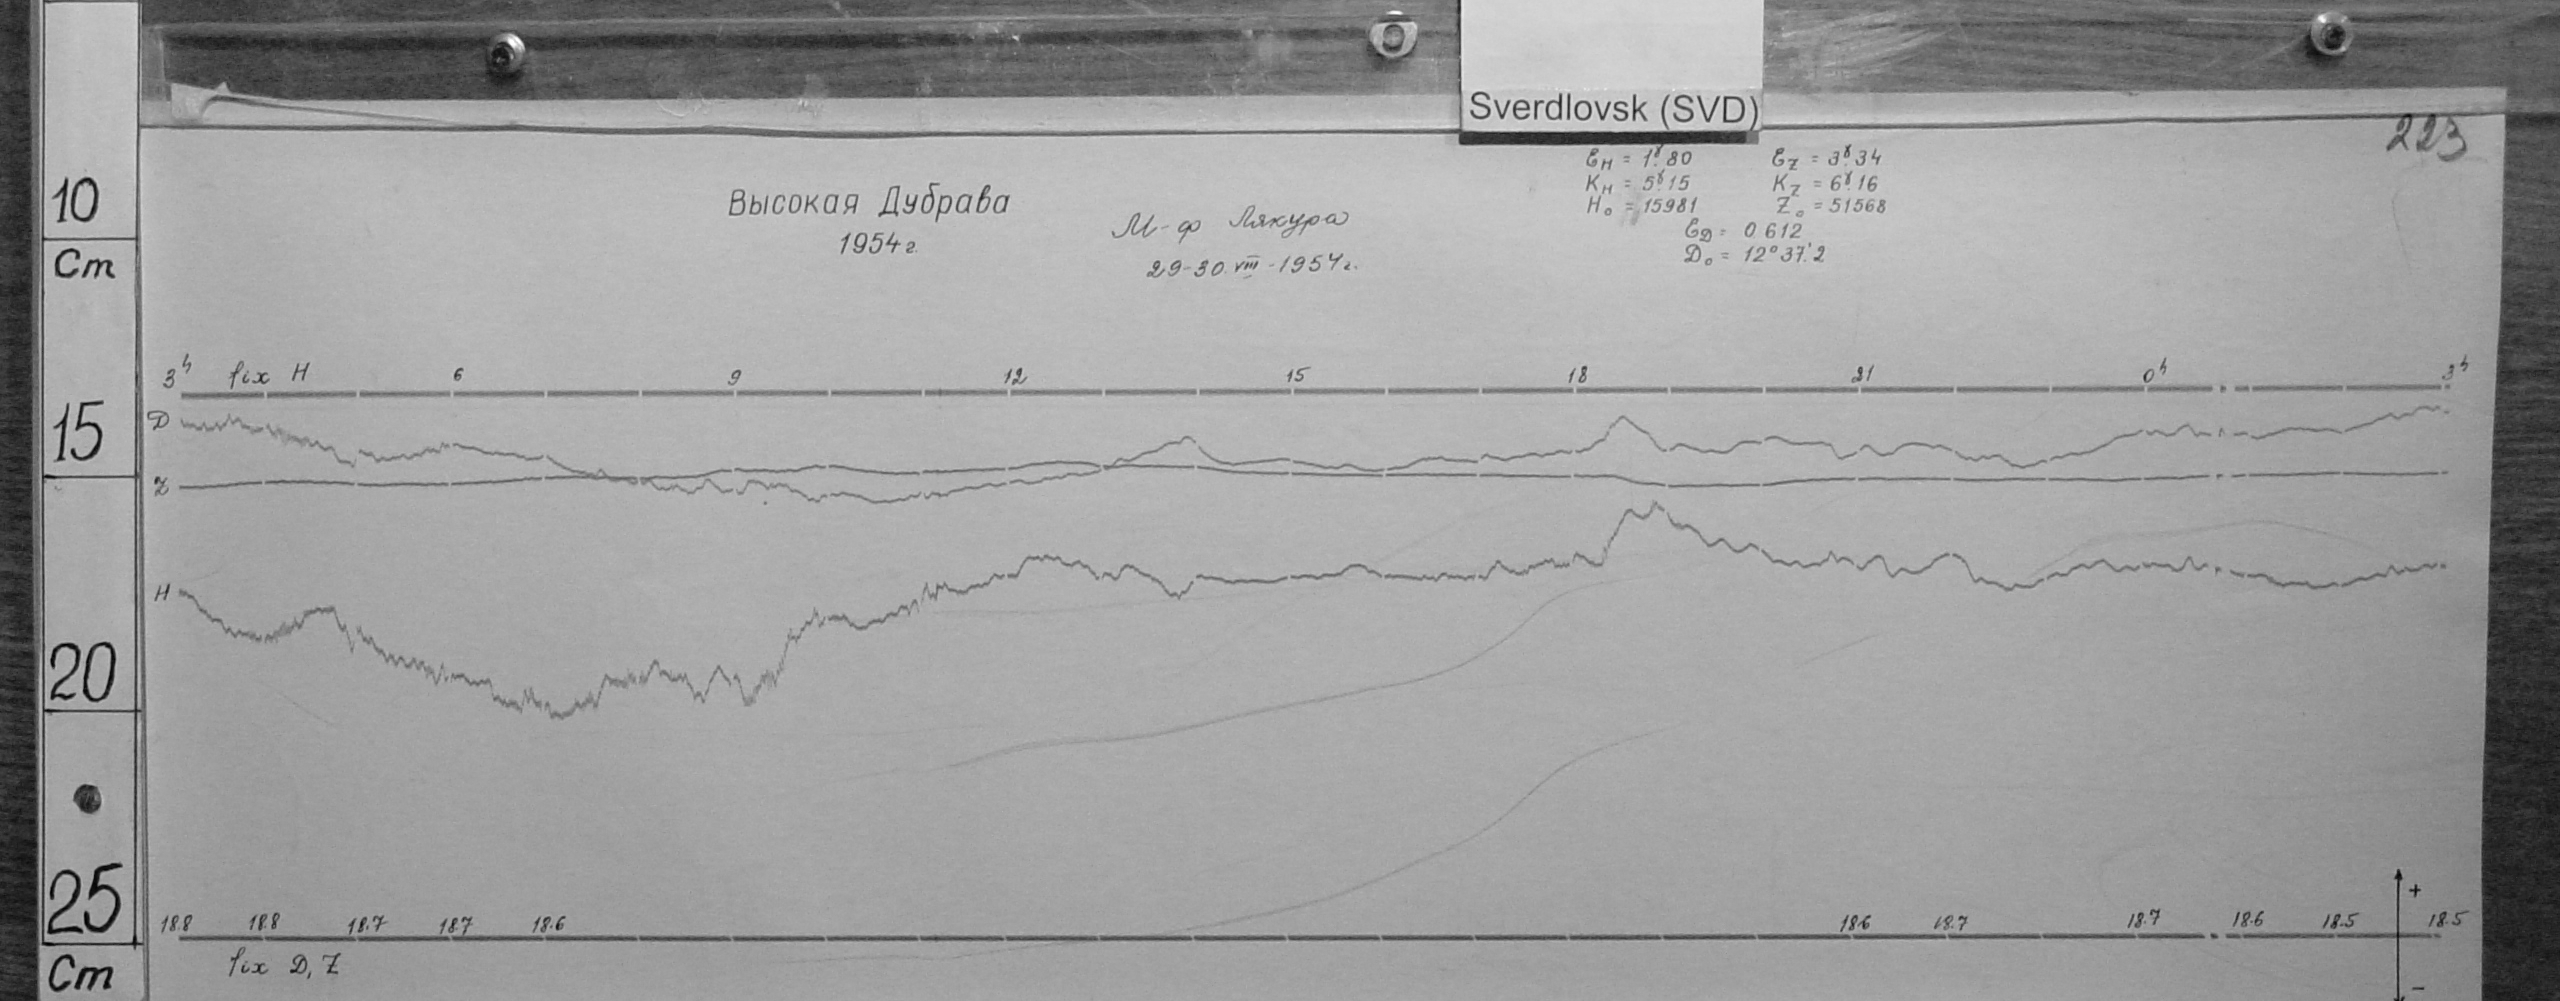 Sverdlovsk (SVD)
223
10
Cm
15
20
25
Cm
Высокая Дубрава
1954 г.
М-ф Лякура
29-30 VIII -1954 г.
Ɛн = 1.ˠ80 Ɛz = 3.ˠ34
Kн = 5.ˠ15 Kz = 6.ˠ16
H₀ = 15981 Z₀ = 51568
ƐD = 0.612
D₀ = 12°37.'2
3ʰ fix H 6 9 12 15 18 21 0ʰ 3ʰ
D
Z
H
+
18.8 18.8 18.7 18.7 18.6 18.6 18.7 18.7 18.6 18.5 18.5
fix D, Z
−